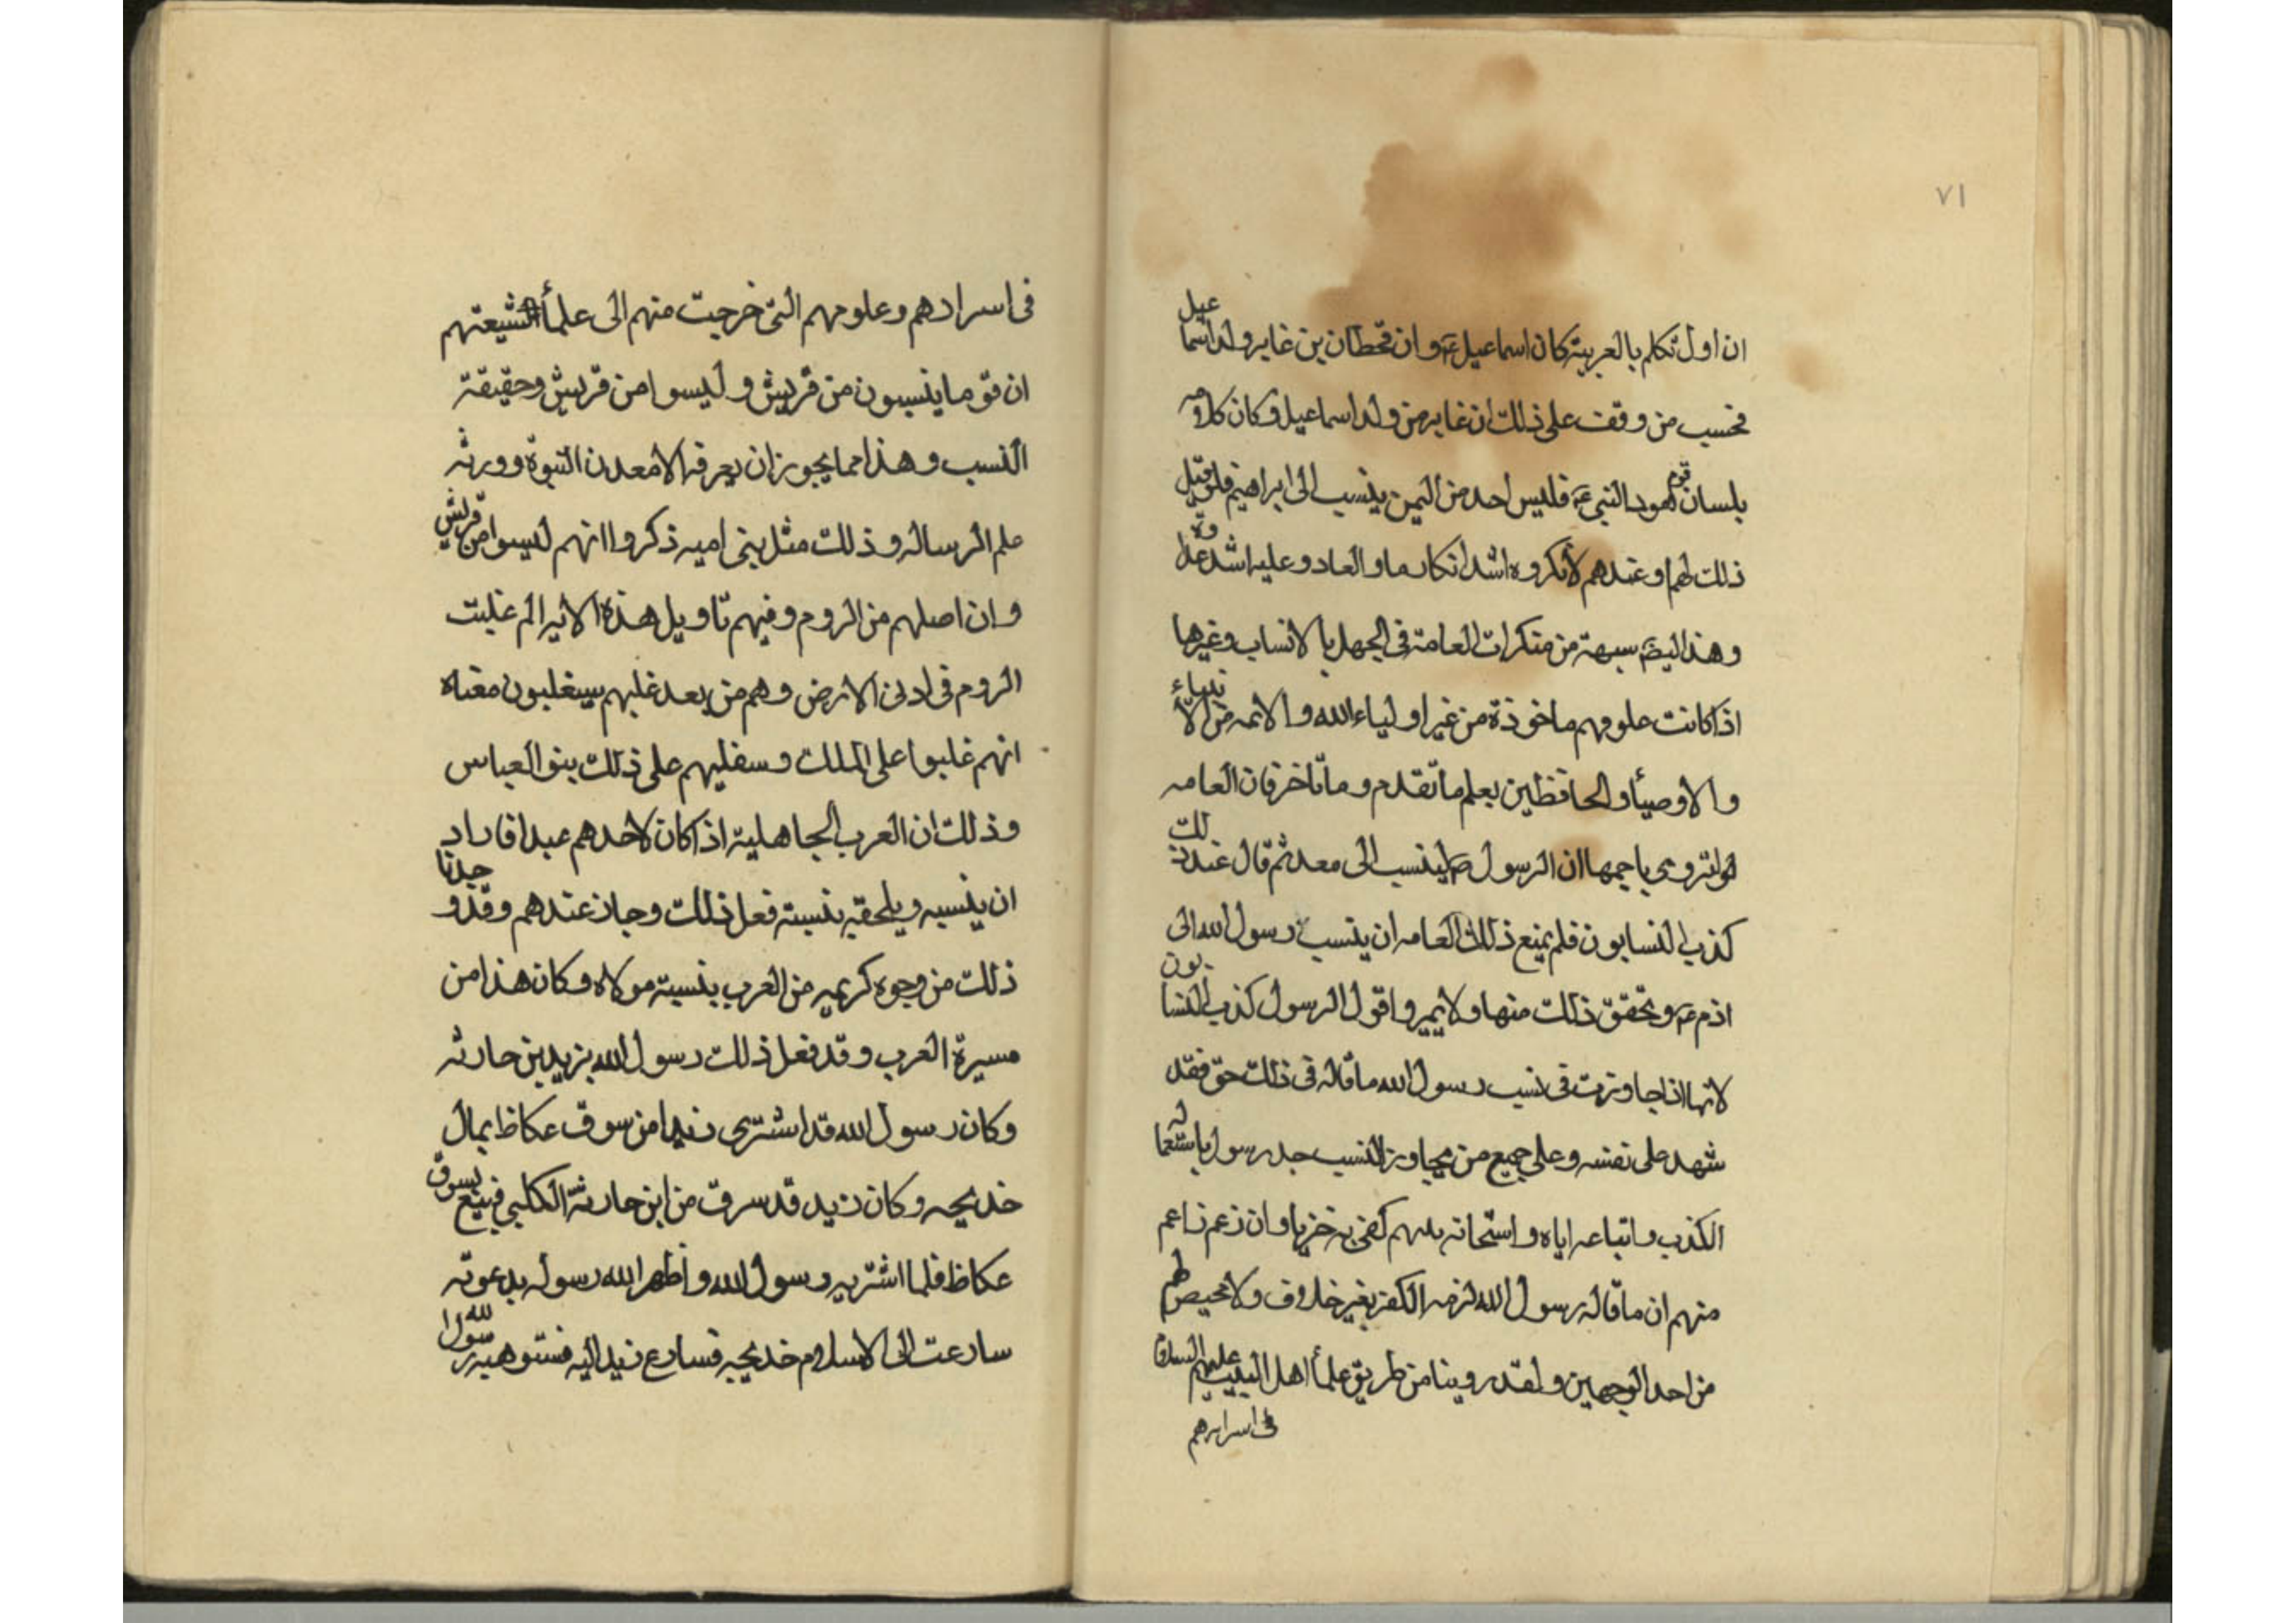 ٧١
ان اول تكلم بالعربية كان اسماعيل ع وان قحطان بن غابر ولد اسماعيل
فحسب من وقف على ذلك ان غابر من ولد اسماعيل وكان كلامه
بلسان قوم هود النبي ع فليس احد من اليمن ينسب الى ابراهيم فلو قيل
ذلك لهم او عندهم لأنكروه اشد انكار وعليه اشد عداوة
وهذا ايضا من منكرات العامة فى الجهل بالانساب وغيرها
اذا كانت علومهم ماخوذة من غير اولياء الله والائمه من الأنبياء
والاوصيأ والحافظين بعلم ما تقدم وما تاخر فان العامه
تروى باجمعها ان الرسول ص لينسب الى معد ثم قال عند ذلك
كذب النسابون فلم يمنع ذلك العامه ان ينسب رسول الله الى
ادم ع وتحقق ذلك منها ولا يميروا قول الرسول كذب النسابون
لانها اذا جاوزت فى نسب رسول الله ما قاله فى ذلك حق فقد
شهد على نفسه وعلى جميع من يجاوز النسب جد رسول باستعماله
الكذب واتباعه اياه كفى به خزيا وان زعم زاعم
منهم ان ما قاله رسول الله لزمه الكفر بغير خلاف ولا محيص لهم
من احد الوجهين ولقد روينا من طريق علمأ اهل البيت عليهم السلام
فى اسرارهم
فى اسرارهم وعلومهم التى خرجت منهم الى علمأ الشيعتهم
ان قوما ينسبون من قريش وليسوا من قريش وحقيقة
النسب وهذا مما يجوز ان يعرفه الا معدن النبوة وورثه
علم الرساله وذلك مثل بنى اميه ذكروا انهم ليسوا من قريش
وان اصلهم من الروم وفيهم تاويل هذه الايه الم غلبت
الروم فى ادنى الارض وهم من بعد غلبهم سيغلبون معناه
انهم غلبوا على الملك وسغليهم على ذلك بنو العباس
وذلك ان العرب الجاهلية اذا كان لاحدهم عبدا فاراد
ان ينسبه ويلحقه بنسبته فعل ذلك وجاز عندهم وقد وجدنا
ذلك من وجوه كريميه من العرب بنسبة مولاه وكان هذا من
مسيرة العرب وقد فعل ذلك رسول الله بزيد بن حارثه
وكان رسول الله قد اشترى زيدا من سوق عكاظ بمال
خديجه وكان زيد قد سرق من ابن حارثة الكلبى فبيع بسوق
عكاظ فلما اشتريه رسول الله واظهر الله رسوله بدعوته
سارعت الى الاسلام خديجه فسارع زيد اليه فستوهبه رسول الله